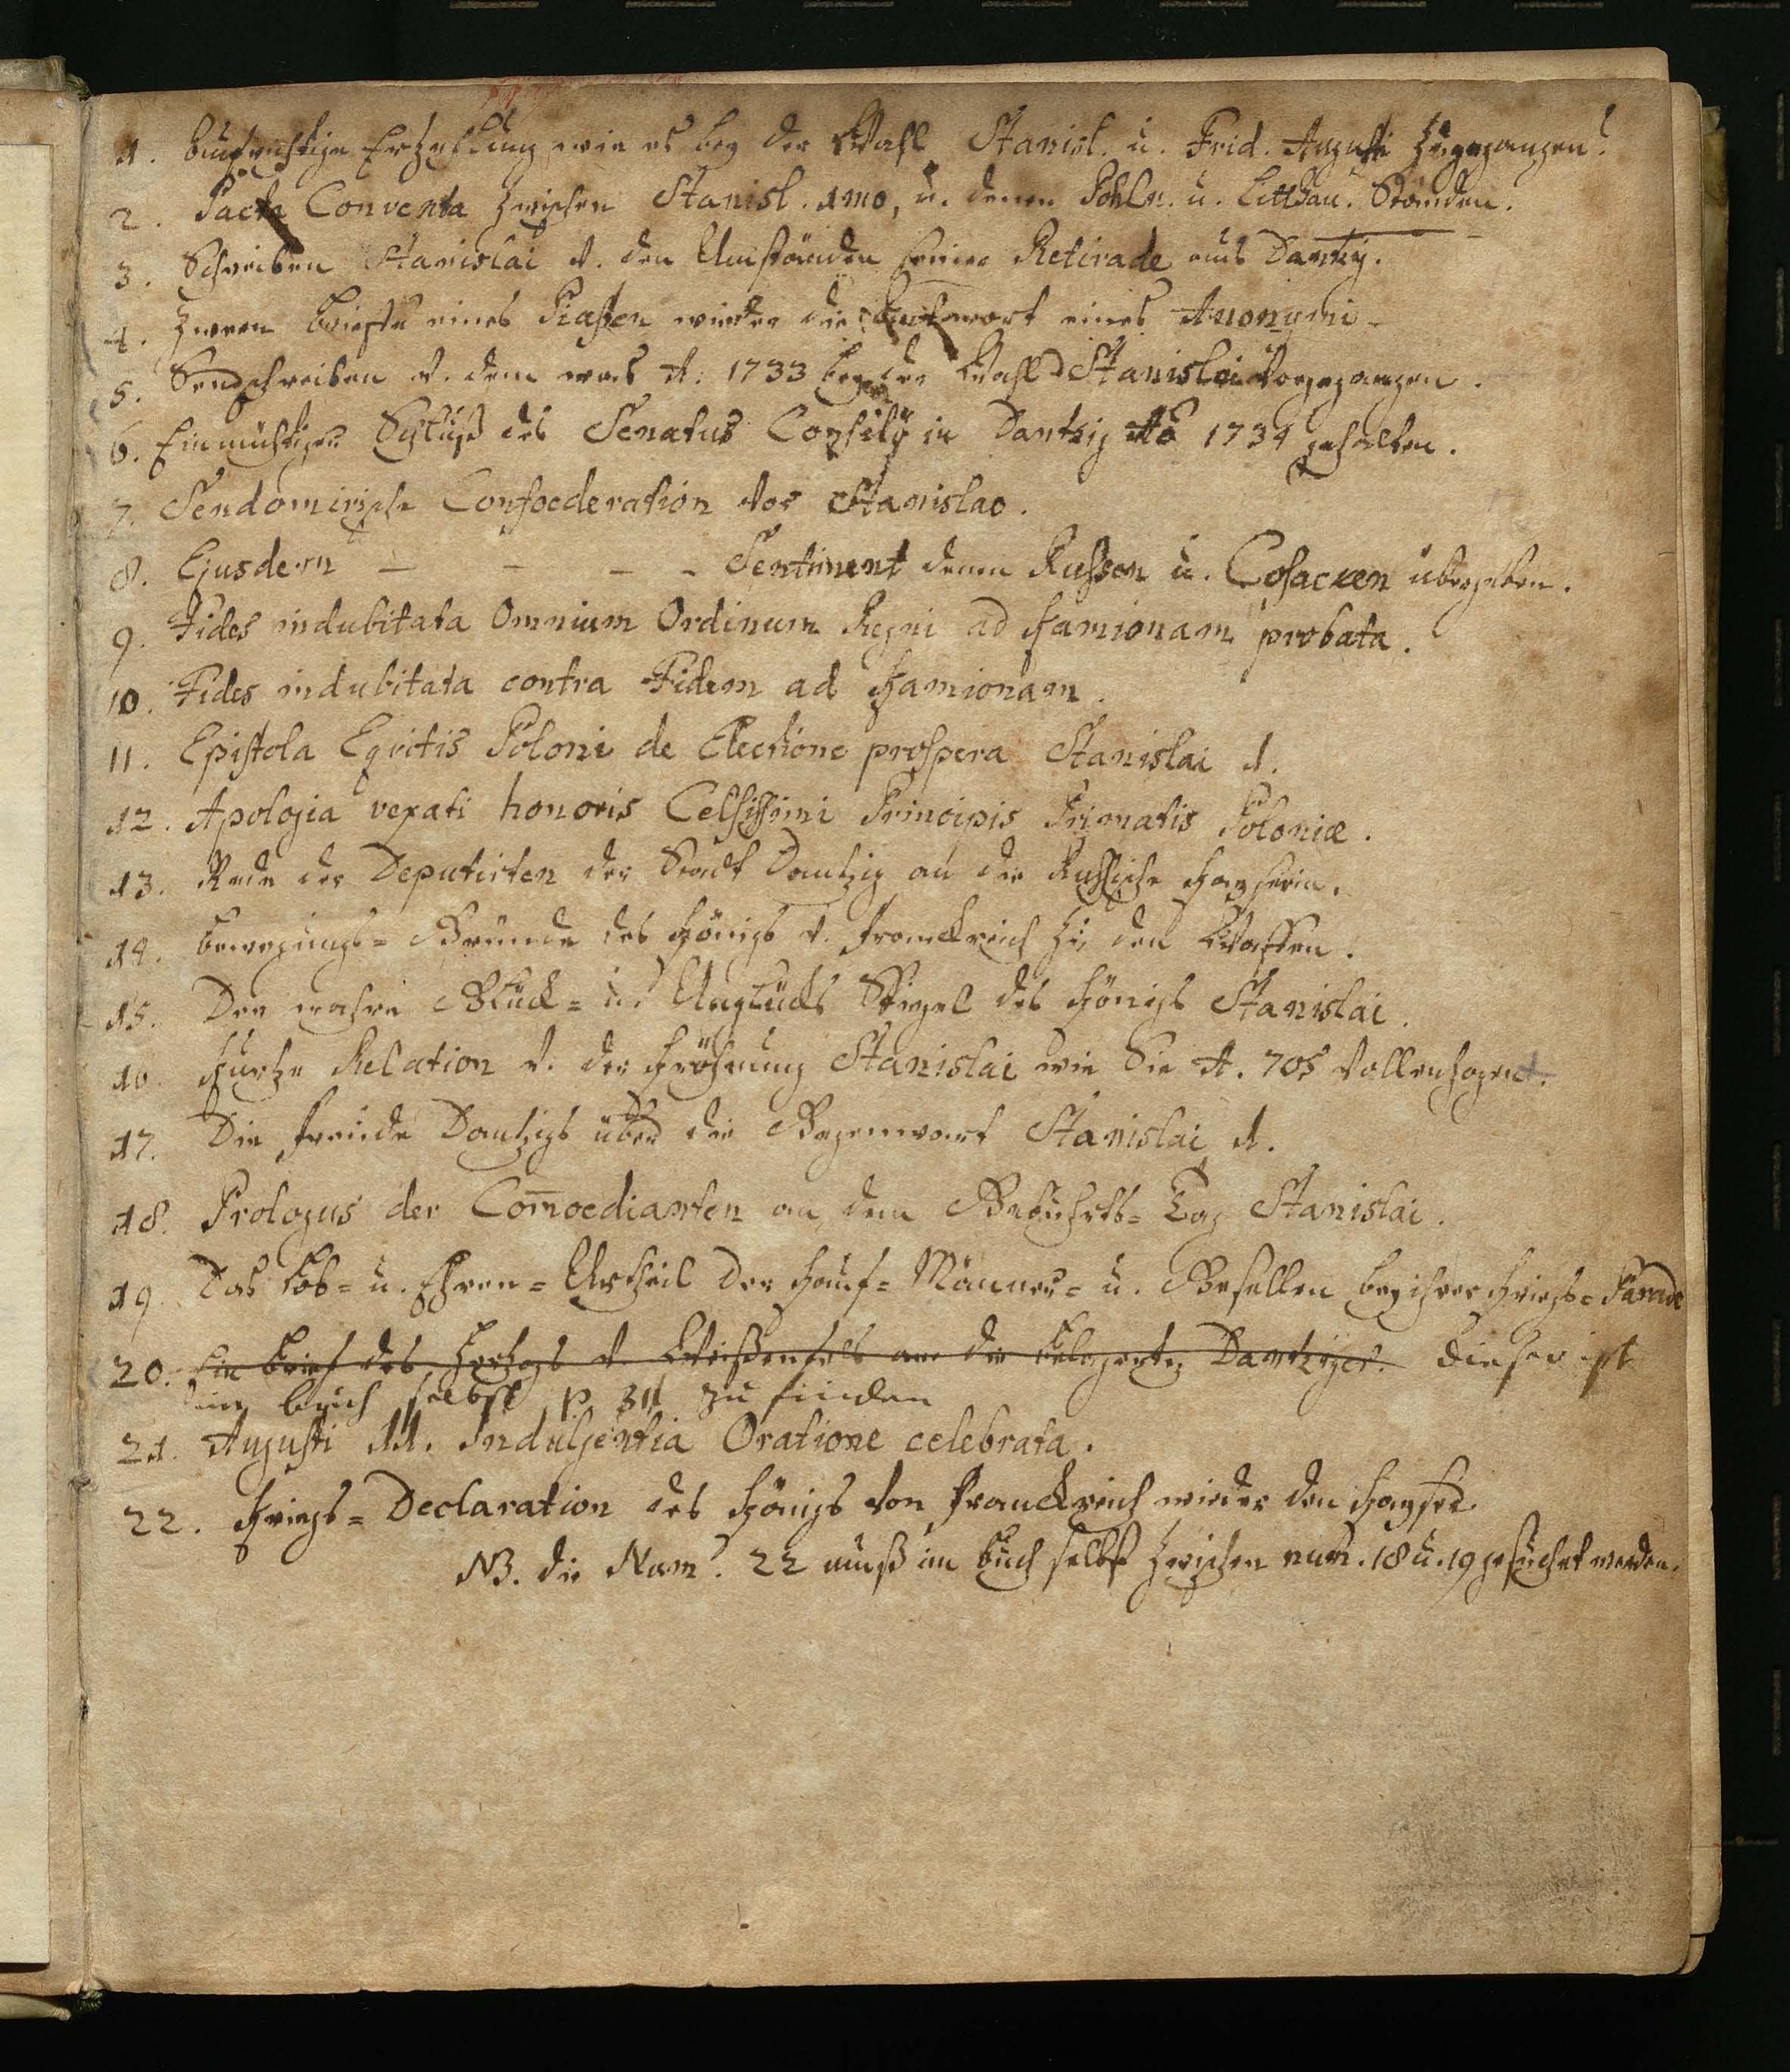 1. Aufrichtige Erzehlung wie es bey der Wahl Stanisl. u. Frid. Augusti zugegangen.
2. Pacta Conventa zwischen Stanisl. 1mo, u. denen Pohln. u. Litthau. Ständen.
3. Schreiben Stanislai v. den Umständen seiner Retirade aus Dantzig.
4. Zween Briefe eines Piasten wieder die Antwort eines Anonymi
5. Sendschreiben v. dem was A. 1733 bey der Wahl Stanislai vorgegangen.
6. Einmüthiger Schluß des Senatus Consilÿ in Dantzig Aõ 1734 gehalten.
7. Sendomirische Confoederation vor Stanislao.
8. Ejusdem - - - - Sentiment denen Russen u. Cosacken übergeben.
9. Fides indubitata Omnium Ordinum Regni ad Kamionam probata.
10. Fides indubitata contra Fidem ad Kamionam.
11. Epistola Eqvitis Poloni de Electione prospera Stanislai 1.
12. Apologia vexati honoris Celsissimi Principis Primatis Poloniæ.
13. Rede der Deputirten der Stadt Dantzig an die Russische Kayserin.
14. Bewegungs= Gründe des Königs v. Franckreich zu den Waffen.
15. Der wahre Glück= u. Unglücks Spiegel des Königs Stanislai.
16. Kurtze Relation v. der Kröhnung Stanislai wie Sie A. 705 vollenzogen.
17. Die Freude Dantzigs über die Gegenwart Stanislai 1.
18. Prologus der Comoedianten an dem Gebuhrts= Tag Stanislai.
19. Das Lob= u. Ehren= Urtheil der Kauf= Männer= u. Gesellen bey ihrer Kriegs= Parade
20. Ein Brief des Hertzogs v. Weißenfels an die belagerte Dantziger. dieser ist
im buch selbst p. 311 zu finden
21. Augusti 11. Indulgentia Oratione celebrata.
22. Kriegs= Declaration des Königs von Franckreich wieder den Kayser.
NB. die Num. 22 muß im Buch selbst zwischen num. 18 u. 19 gesuchet werden.